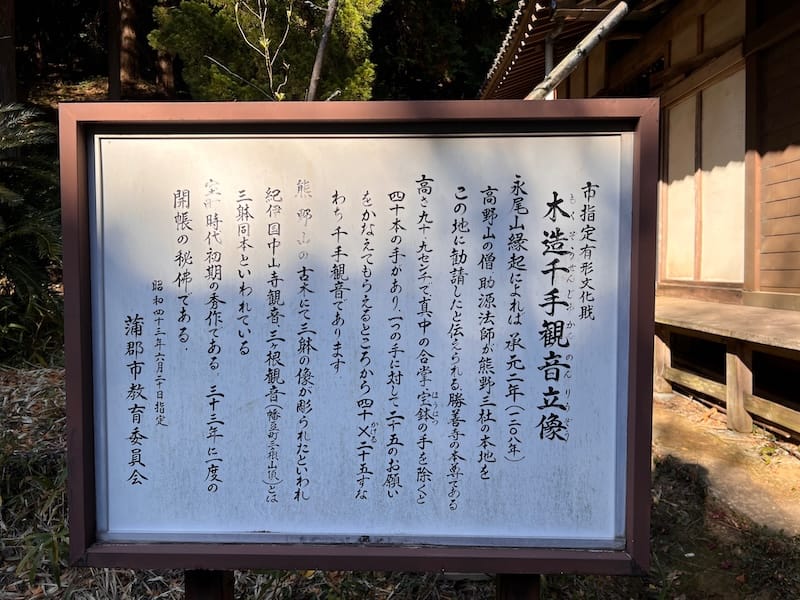 市指定有形文化財
木造千手観音立像
もくぞうせんじゅかんのんりゅうぞう
永尾山縁起によれば 承元二年(一二〇八年)
高野山の僧 助源法師が熊野三社の本地を
この地に勧請したと伝えられる。勝善寺の本尊である
高さ九十・九センチで真中の合掌・宝鉢の手を除くと
ほうはつ
四十本の手があり、一つの手に対して二十五のお願い
をかなえてもらえるところから四十×二十五すな
かける
わち千手観音であります。
熊野山の古木にて三躰の像が彫られたといわれ
紀伊国中山寺観音 三ヶ根観音(幡豆町三ヶ根山頂)とは
三躰同木といわれている
室町時代初期の秀作である。三十三年に一度の
開帳の秘佛である.
昭和四十三年六月二十日指定
蒲郡市教育委員会